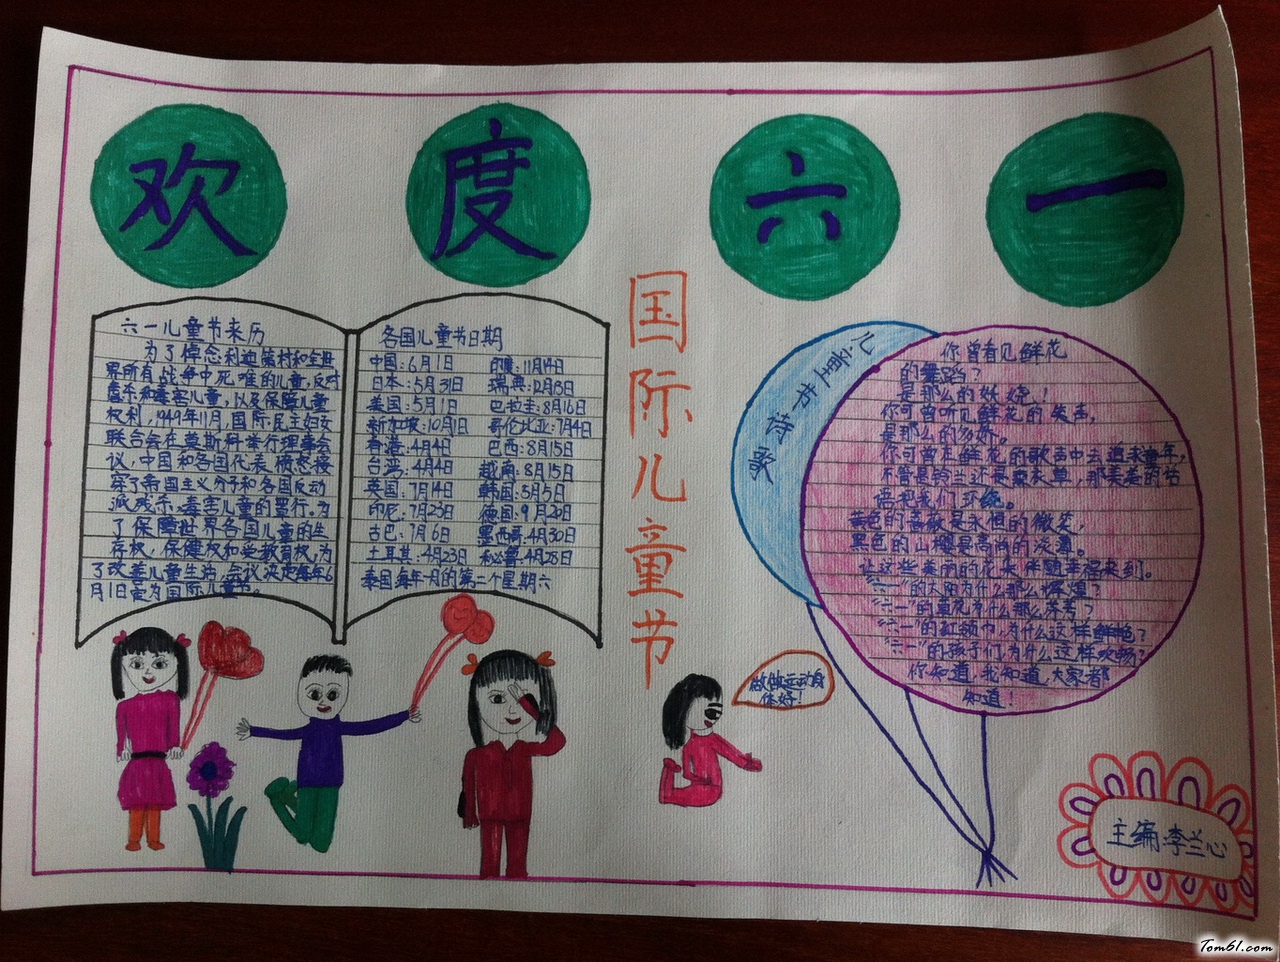 欢度六一
国际儿童节
六一儿童节来历
为了悼念利迪策村和全世
界所有战争中死难的儿童,反对
虐杀和毒害儿童,以及保障儿童
权利,1949年11月,国际民主妇女
联合会在莫斯科举行理事会
议,中国和各国代表愤怒揭
穿了帝国主义分子和各国反动
派残杀、毒害儿童的罪行。为
了保障世界各国儿童的生
存权、保健权和受教育权,为
了改善儿童生活,会议决定每年6
月1日为国际儿童节。
各国儿童节日期
中国:6月1日 印度:11月14日
日本:5月31日 瑞典:12月6日
美国:5月1日 巴拉圭:8月16日
新加坡:10月1日 哥伦比亚:7月4日
香港:4月4日 巴西:8月15日
台湾:4月4日 越南:8月15日
英国:7月14日 韩国:5月5日
印尼:7月23日 德国:9月20日
古巴:7月6日 墨西哥:4月30日
土耳其:4月23日 秘鲁:4月25日
泰国每年一月的第二个星期六
儿童节诗歌
你曾看见鲜花
的舞蹈?
是那么的妖娆!
你可曾听见鲜花的笑声,
是那么的
你可曾在鲜花的歌声中去追求童年,
不管是铃兰还是薰衣草,那美差的花
语把我们环绕。
黄色的蔷薇是永恒的微笑,
黑色的山樱是高尚的淡薄。
让这些美丽的花朵伴随幸福来到。
“六一”的太阳为什么那么
“六一”的草花为什么那么芬芳?
“六一”的红领巾,为什么这样鲜艳?
“六一”的孩子们,为什么这样欢畅?
你知道,我知道,大家都
知道!
做做运动身
体好!
主编:李兰心
Tom61.com